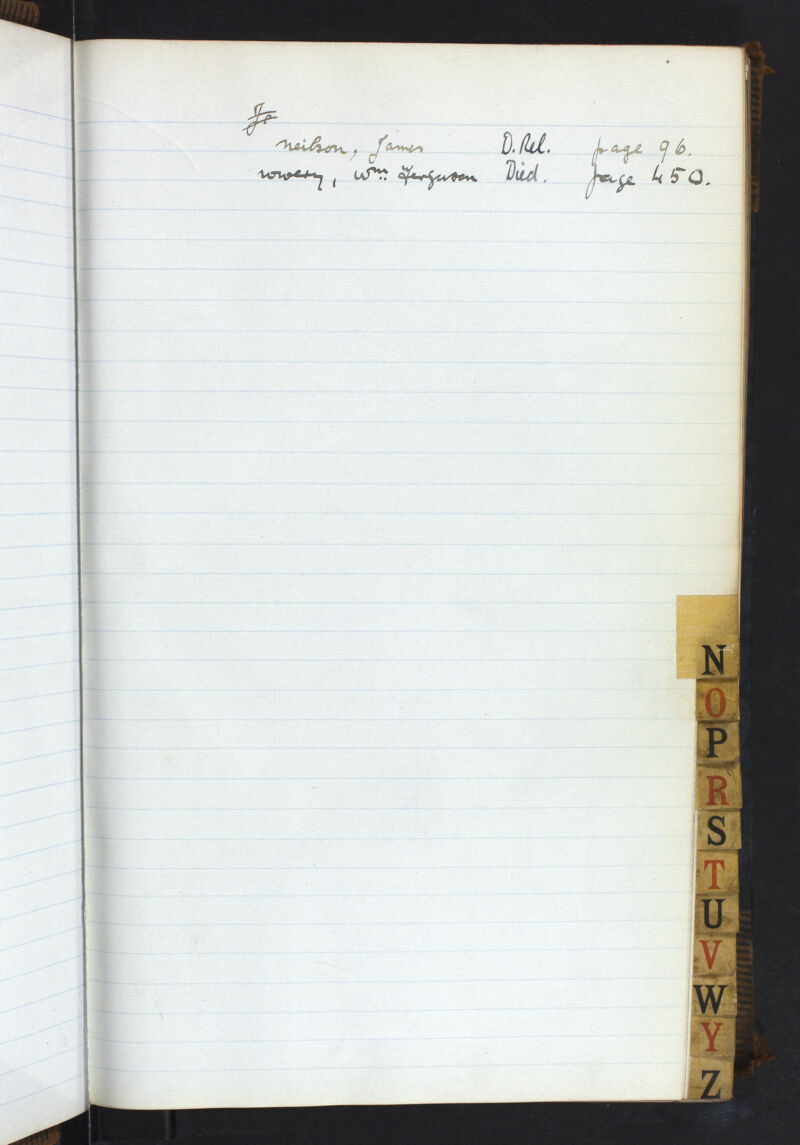 neilson, James D. Rel. page 96.
nowery, Wm. Ferguson Died. page 450.
N
O
P
R
S
T
U
V
W
Y
Z